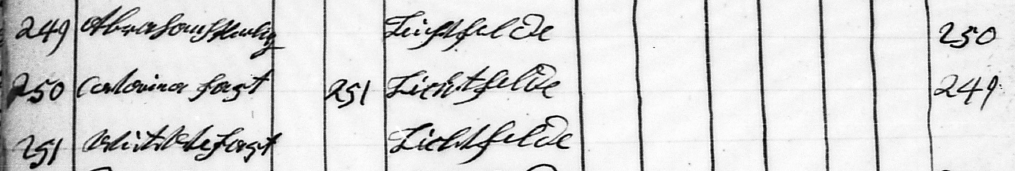 249 Abraham Lichtfelde 250
250 Catarina fast 251 Lichtfelde 249
251 fast Lichtfelde